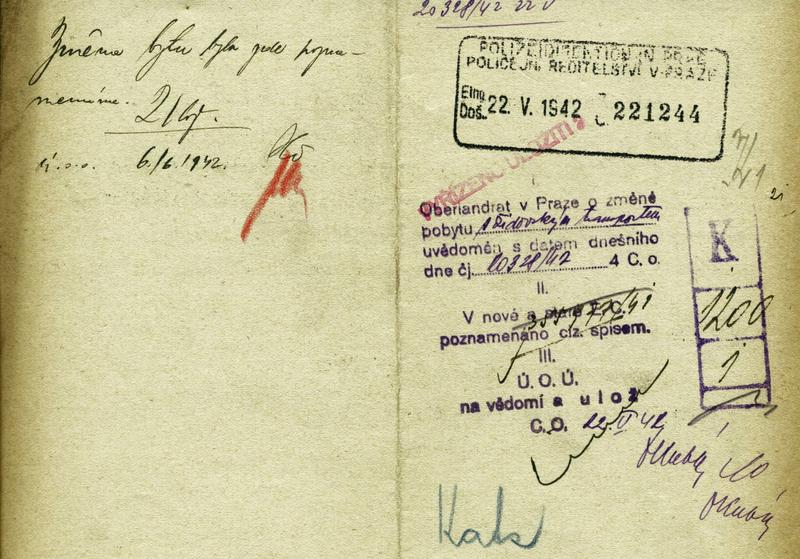 Změna bytu byla zde pozna-
menána.
Ulož.
6./6. 1942.
20328/42
POLIZEIDIREKTION IN PRAG
POLICEJNÍ ŘEDITELSTVÍ V PRAZE
Eing.
Doš. 22. V. 1942 221244
VYŘÍZENO ULOŽITI
Oberlandrat v Praze o změně
pobytu židovským transportem
uvědoměn s datem dnešního
dne čj. 20328/42 4 C. o.
II.
V nové a staré E.C.
poznamenáno ciz. spisem.
III.
Ú. O. Ú.
na vědomí a ulož
C. O. 22 V 42
K
1200
1
Kals